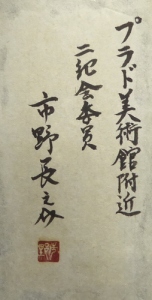 プラド美術館附近
二紀会委員
市野長之介